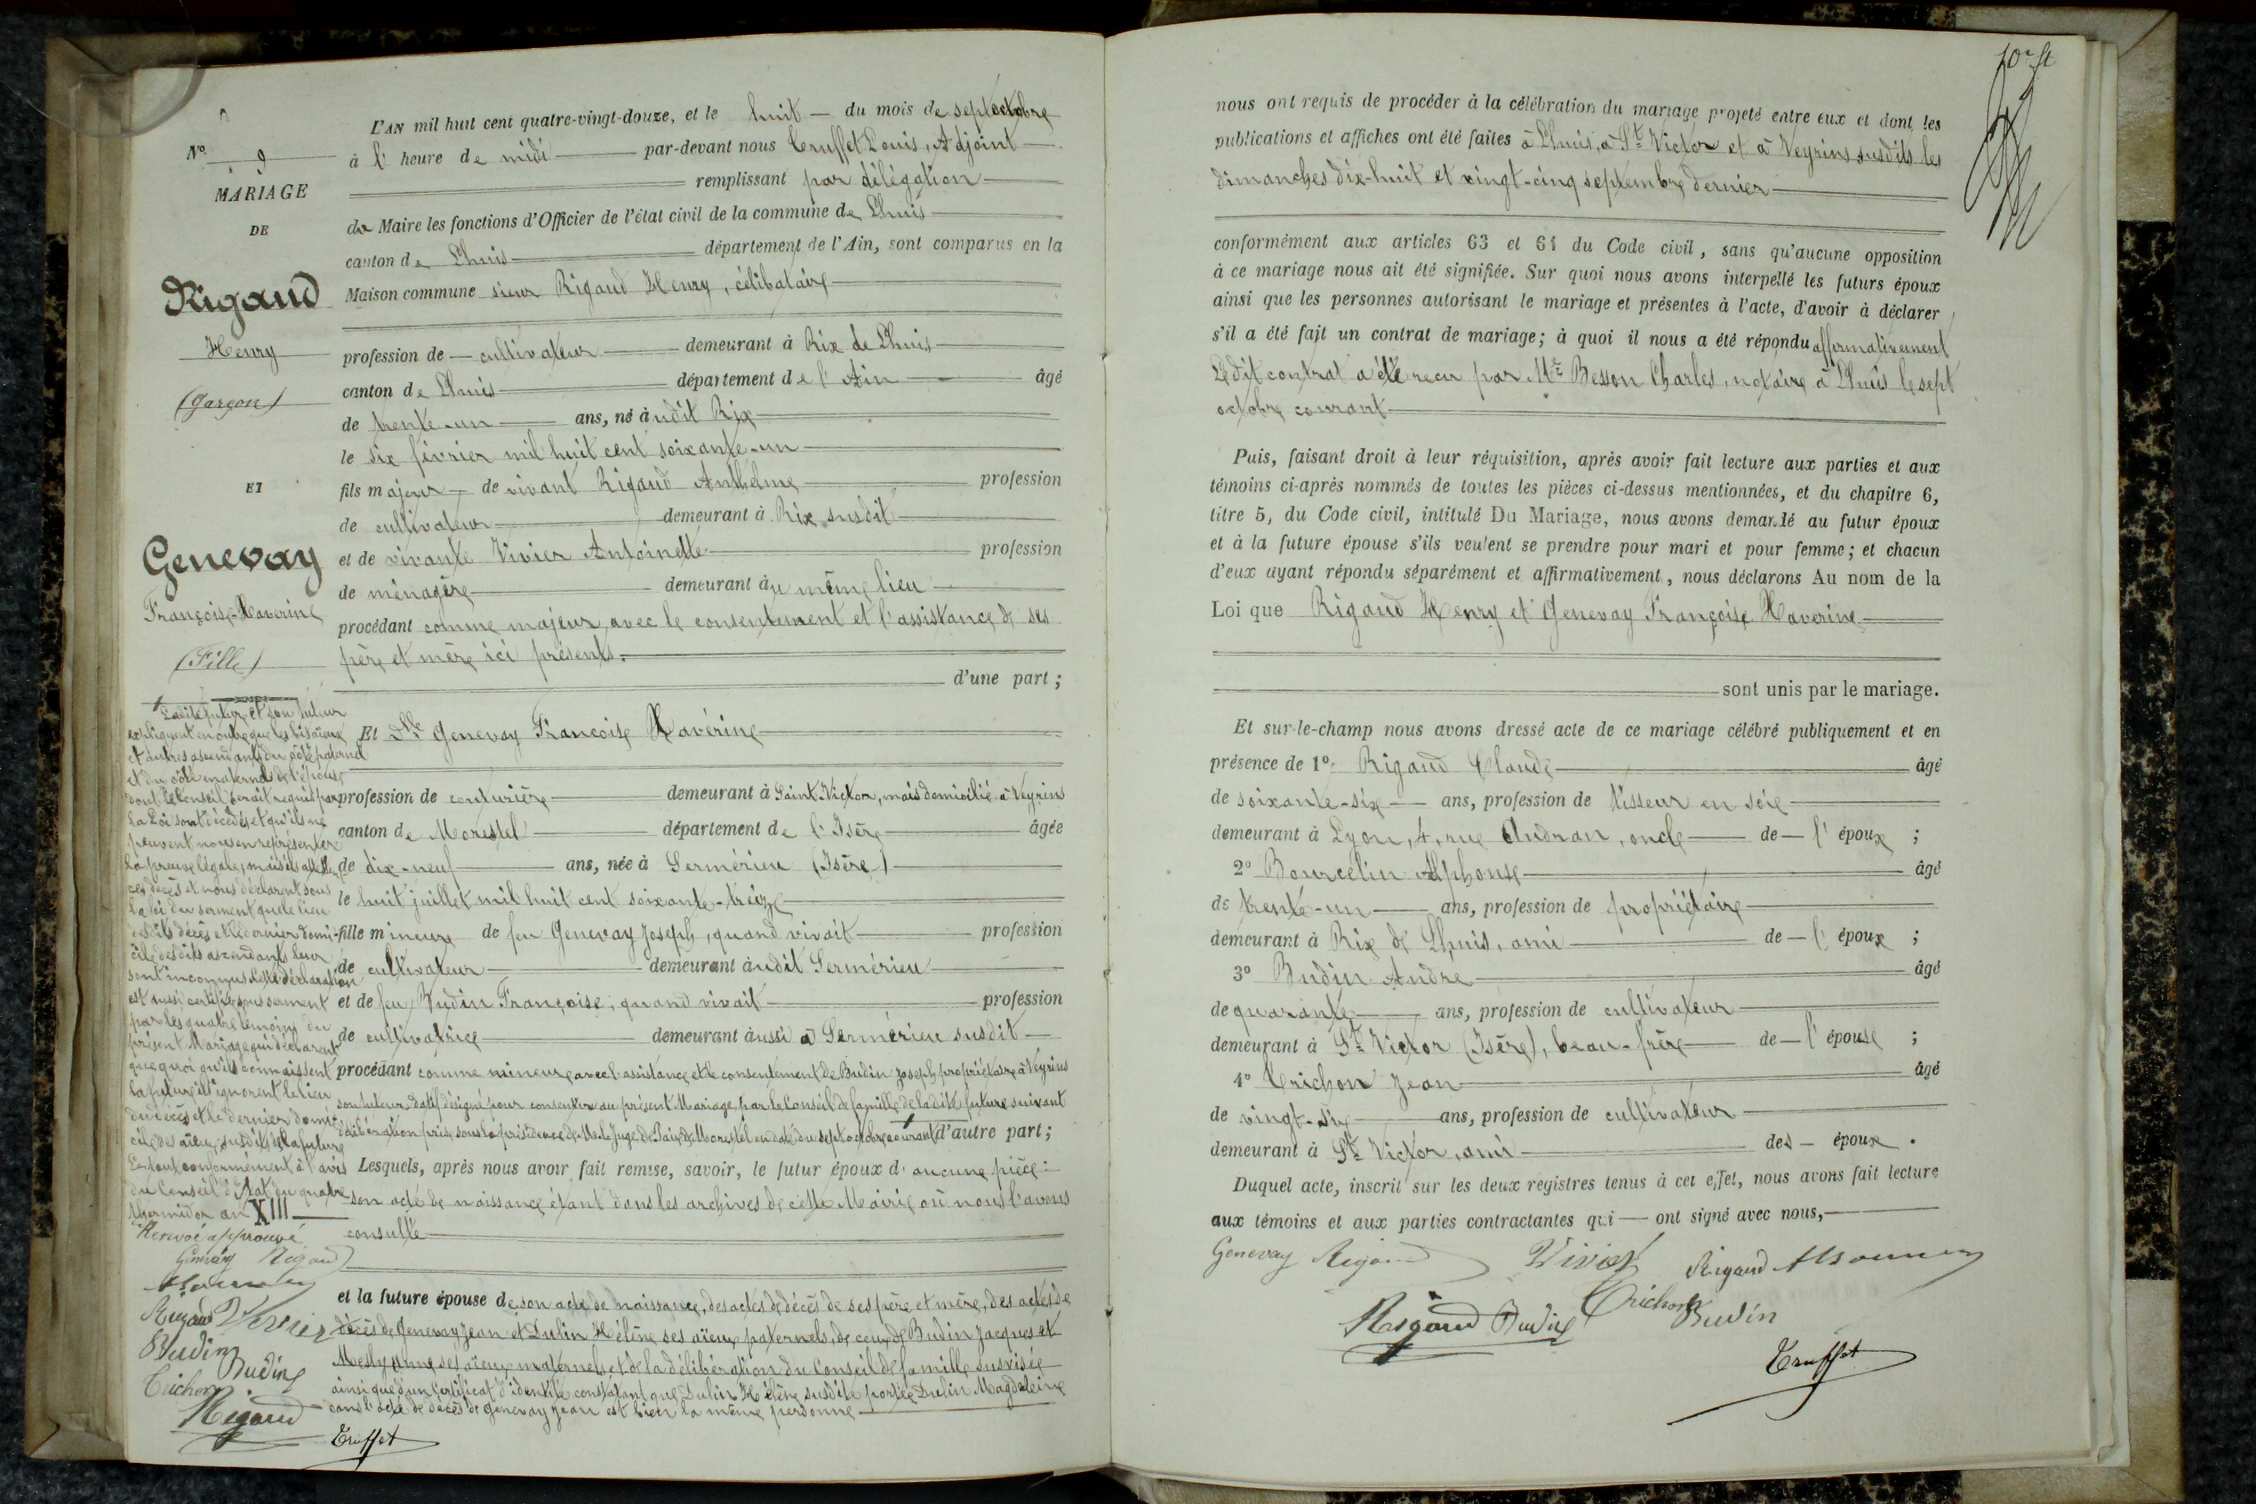 No 9
MARIAGE
DE
Rigaud
Henry
(garçon)
ET
Genevay
Françoise-Xaverine
(Fille)
L'AN mil huit cent quatre-vingt-douze, et le huit — du mois de sept octobre
à l' heure de midi — par-devant nous Truffet Louis, Adjoint —
remplissant par délégation —
de Maire les fonctions d'Officier de l'état civil de la commune de Lhuis
canton de Lhuis — département de l'Ain, sont comparus en la
Maison commune sieur Rigaud Henry, célibataire
profession de — cultivateur — demeurant à Rix de Lhuis
canton de Lhuis — département de l' Ain — âgé
de trente-un — ans, né àudit Rix
le six février mil huit cent soixante-un
fils majeur — de vivant Rigaud Anthelme — profession
de cultivateur — demeurant à Rix susdit
et de vivante Vivier Antoinette — profession
de ménagère — demeurant àu même lieu
procédant comme majeur, avec le consentement et l'assistance de ses
père et mère ici présents.
d'une part ;
Et Dlle Genevay Françoise Xavérine
profession de couturière — demeurant à Saint-Victor, mais domicilié à Veyrins
canton de Morestel — département de l'Isère — âgée
de dix-neuf — ans, née à Sermérieu (Isère)
le huit juillet mil huit cent soixante-treize
fille mineure de feu Genevay Joseph, quand vivait — profession
de cultivateur — demeurant àudit Sermérieu
et de feu Budin Françoise, quand vivait — profession
de cultivatrice — demeurant àussi à Sermérieu susdit —
procédant comme mineure avec l'assistance et le consentement de Budin Joseph propriétaire à Veyrins
son tuteur datif désigné pour consentir au présent Mariage, par le Conseil de famille de ladite future suivant
délibération prise sous la présidence de M. le Juge de Paix de Morestel en date du sept octobre courant d'autre part ;
Lesquels, après nous avoir fait remise, savoir, le futur époux d'aucune pièce :
son acte de naissance étant dans les archives de cette Mairie où nous l'avons
consulté
et la future épouse de son acte de naissance, des actes de décès de ses père et mère, des actes de
décès de Genevay Jean et Dulin Hélène ses aïeux paternels, de ceux de Budin Jacques et
Mesly Anne ses aïeux maternels, et de la délibération du Conseil de famille susvisée
ainsi que d'un Certificat d'identité constatant que Dulin Hélène susdite portée Dulin Magdeleine
dans l'acte de décès de Genevay Jean est bien la même personne
Truffet
Ladite future et son tuteur
expliquent en outre que les bisaïeux
et autres ascendants du côté paternel
et du côté maternel de l'épouse
dont le Conseil serait requis par
la Loi sont décédés et qu'ils ne
peuvent nous en représenter
la preuve légale, mais ils attestent
ces décès et nous déclarent sous
la foi du serment que le lieu
desdits décès et le dernier domi-
cile desdits ascendants leur
sont inconnus. Cette déclaration
est aussi certifiée sous serment
par les quatre témoins du
présent Mariage qui déclarent
que quoi qu'ils connaissent
la future ils ignorent le lieu
du décès et le dernier domi-
cile des aïeux susdits de la future
Le tout conformément à l'avis
du Conseil d'État du quatre
thermidor an XIII
Renvoi approuvé
Genevay Rigaud
Rigaud Vivier
Budin
Budin
Crichon
Rigaud
nous ont requis de procéder à la célébration du mariage projeté entre eux et dont les
publications et affiches ont été faites à Lhuis, à St Victor et à Veyrins susdits les
dimanches dix-huit et vingt-cinq septembre dernier
conformément aux articles 63 et 64 du Code civil, sans qu'aucune opposition
à ce mariage nous ait été signifiée. Sur quoi nous avons interpellé les futurs époux
ainsi que les personnes autorisant le mariage et présentes à l'acte, d'avoir à déclarer
s'il a été fait un contrat de mariage; à quoi il nous a été répondu affirmativement
Ledit contrat a été reçu par Me Besson Charles, notaire à Lhuis le sept
octobre courant
Puis, faisant droit à leur réquisition, après avoir fait lecture aux parties et aux
témoins ci-après nommés de toutes les pièces ci-dessus mentionnées, et du chapitre 6,
titre 5, du Code civil, intitulé Du Mariage, nous avons demandé au futur époux
et à la future épouse s'ils veulent se prendre pour mari et pour femme; et chacun
d'eux ayant répondu séparément et affirmativement, nous déclarons Au nom de la
Loi que Rigaud Henry et Genevay Françoise Xaverine
sont unis par le mariage.
Et sur-le-champ nous avons dressé acte de ce mariage célébré publiquement et en
présence de 1° Rigaud Claude — âgé
de soixante-six — ans, profession de tisseur en soie
demeurant à Lyon, 4, rue Audran, oncle — de — l' époux ;
2° Bourcelin Alphonse — âgé
de trente-un — ans, profession de propriétaire
demeurant à Rix de Lhuis, ami — de — l' époux ;
3° Budin André — âgé
de quarante — ans, profession de cultivateur
demeurant à St Victor (Isère), beau-frère — de — l' épouse ;
4° Crichon Jean — âgé
de vingt-six — ans, profession de cultivateur
demeurant à St Victor, ami — des — époux .
Duquel acte, inscrit sur les deux registres tenus à cet effet, nous avons fait lecture
aux témoins et aux parties contractantes qui — ont signé avec nous,
Genevay Rigaud Vivier Rigaud
Crichon
Rigaud Budin Budin
Truffet